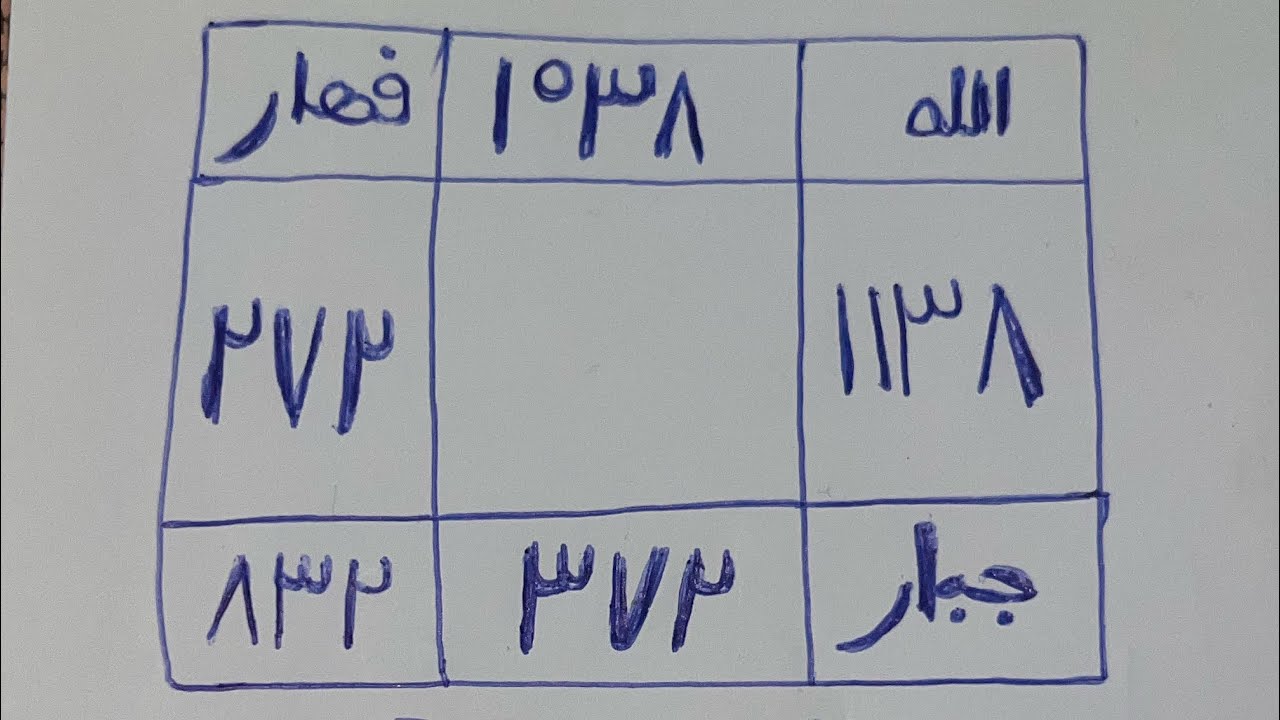 الله ١٥٣٨ فهار
١١٣٨ ٢٧٢
جبار ٣٧٢ ٨٣٢